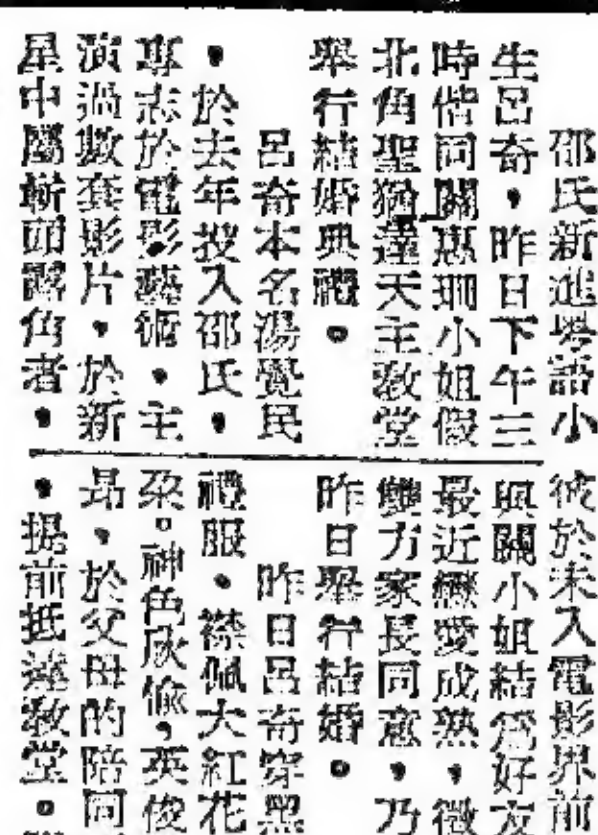 邵氏新進粤語小
生呂奇，昨日下午三
時偕同關惠珊小姐假
北角聖猶達天主教堂
舉行結婚典禮。
呂奇本名湯覺民
，於去年投入邵氏，
專志於電影藝術，主
演過數套影片，於新
星中屬嶄頭露角者，
彼於未入電影界前
與關小姐結爲好友
最近戀愛成熟，徵
雙方家長同意，乃
昨日舉行結婚。
昨日呂奇穿黑
禮服，襟佩大紅花
朶。神色欣愉，英俊
昂，於父母的陪同
，提前抵達教堂。